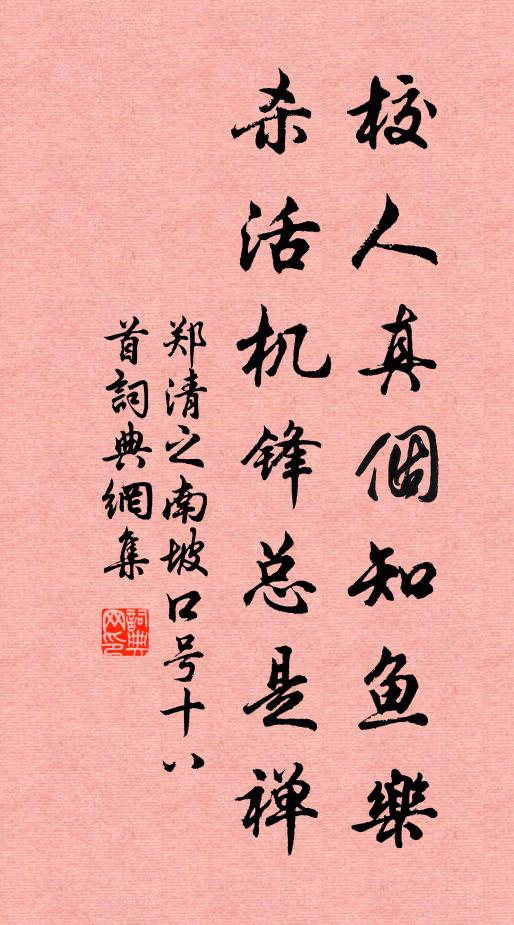 校人真個知鱼樂
杀活机锋总是禅
郑清之南坡口号十八
首詞典網集
詞典网印